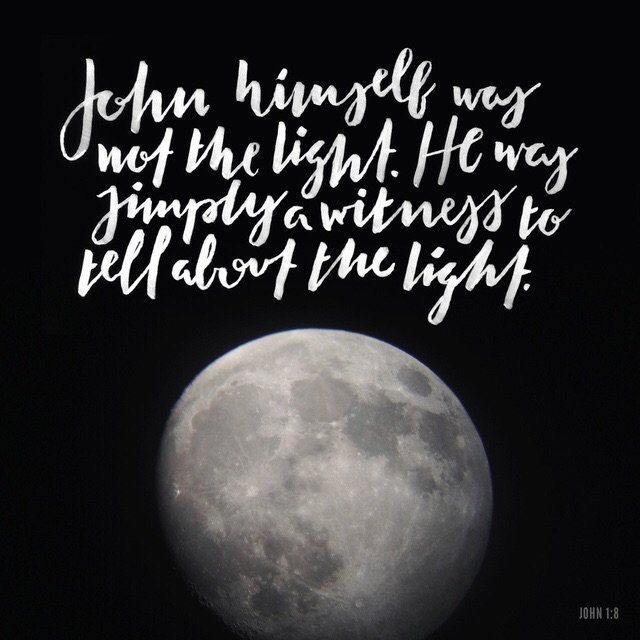 John himself was
not the light. He was
simply a witness to
tell about the light.
JOHN 1:8